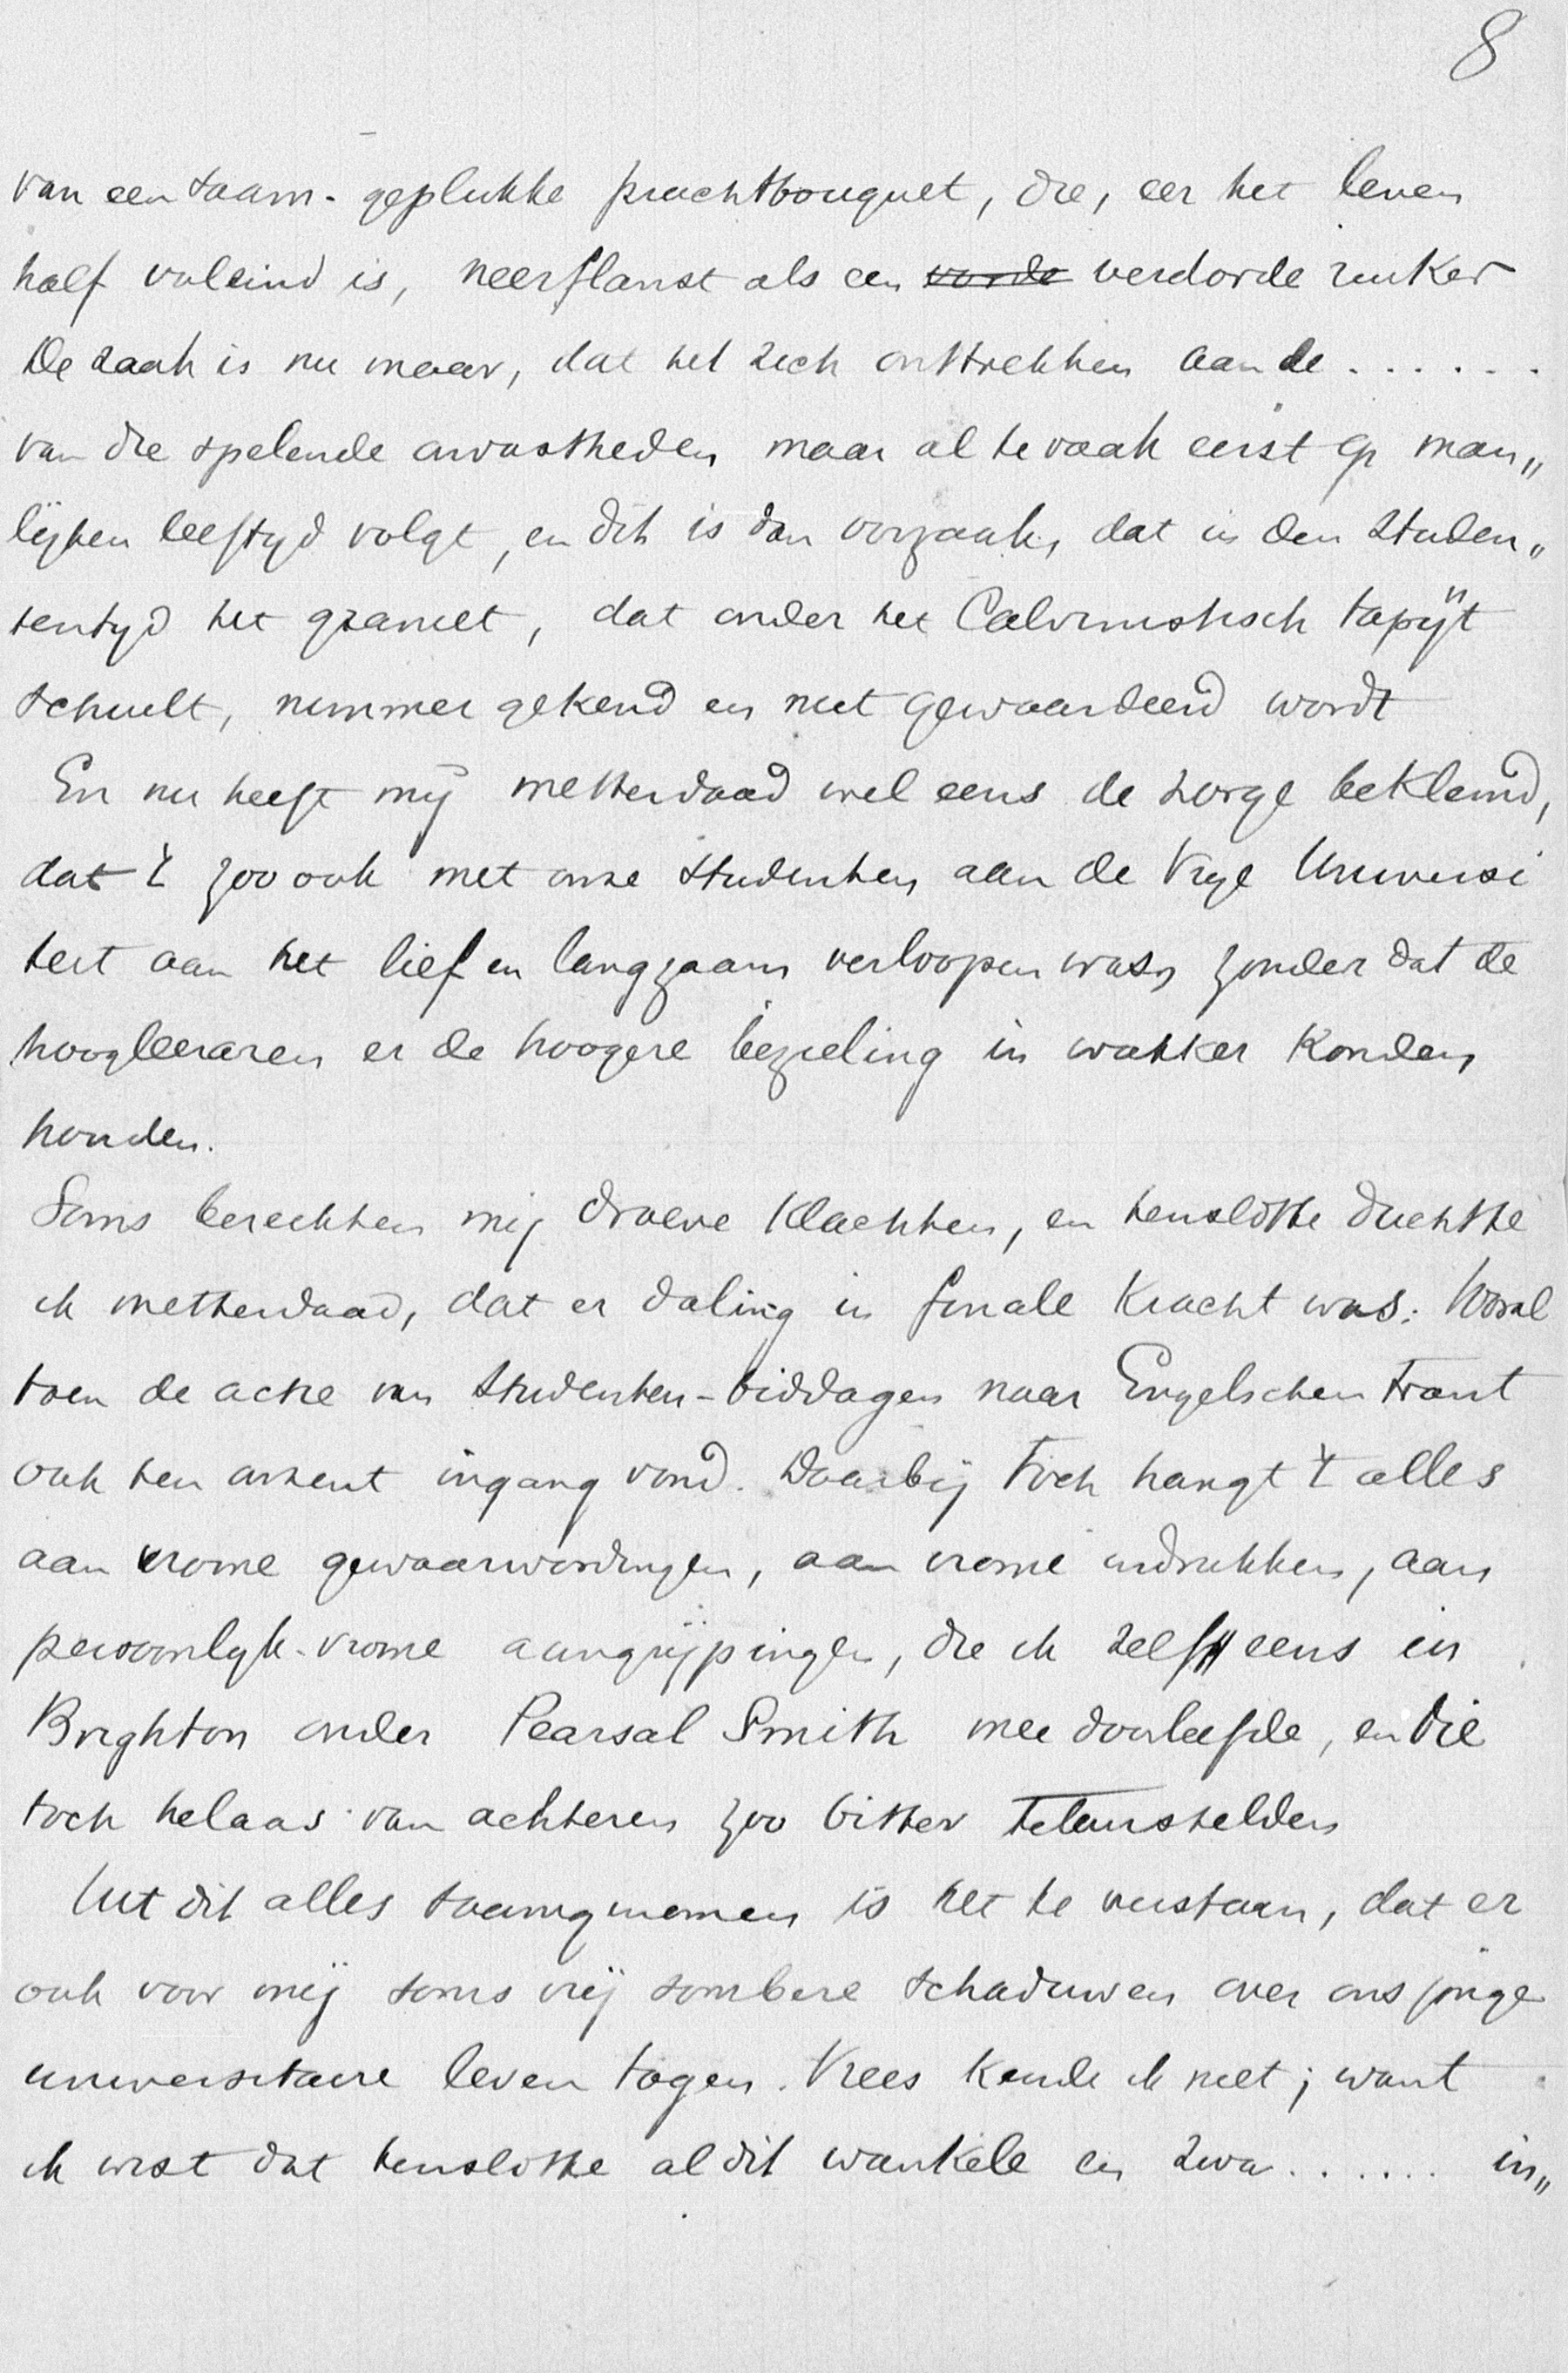 8
van een saam-geplukte prachtbouquet, die, eer het leven
half voleind is, neerflanst als een vorde verdorde ruiker
De zaak is nu maar, dat het zich onttrekken aan de ......
van die spelende onvastheden maar al te vaak eerst op man„
lijken leeftyd volgt, en dit is dan oorzaak, dat in den studen„
tentyd het graniet, dat onder het Calvinistisch tapijt
schuilt, nimmer gekend en niet gewaardeerd wordt
En nu heeft mij metterdaad wel eens de zorge beklemd,
dat 't zoo ook met onze studenten aan de Vrye Universi
teit aan het lief en langzaam verloopen was, zonder dat de
hoogleeraren er de hoogere bezieling in wakker konden
houden.
Soms bereikten mij droeve klachten, en tenslotte duchtte
ik metterdaad, dat er daling in finale kracht was. Vooral
toen de actie van studenten-biddagen naar Engelschen trant
ook ten onzent ingang vond. Daarbij toch hangt 't alles
aan vrome gewaarwordingen, aan vrome indrukken, aan
persoonlyk-vrome aangrijpingen, die ik zelf eens in
Brighton onder Pearsal Smith mee doorleefde, en die
toch helaas van achteren zoo bitter teleurstelden
Uit dit alles saamgenomen is het te verstaan, dat er
ook voor mij soms vrij sombere schaduwen over ons jonge
universitaire leven togen. Vrees kende ik niet; want
ik wist dat tenslotte al dit wankele en zwa ...... in„